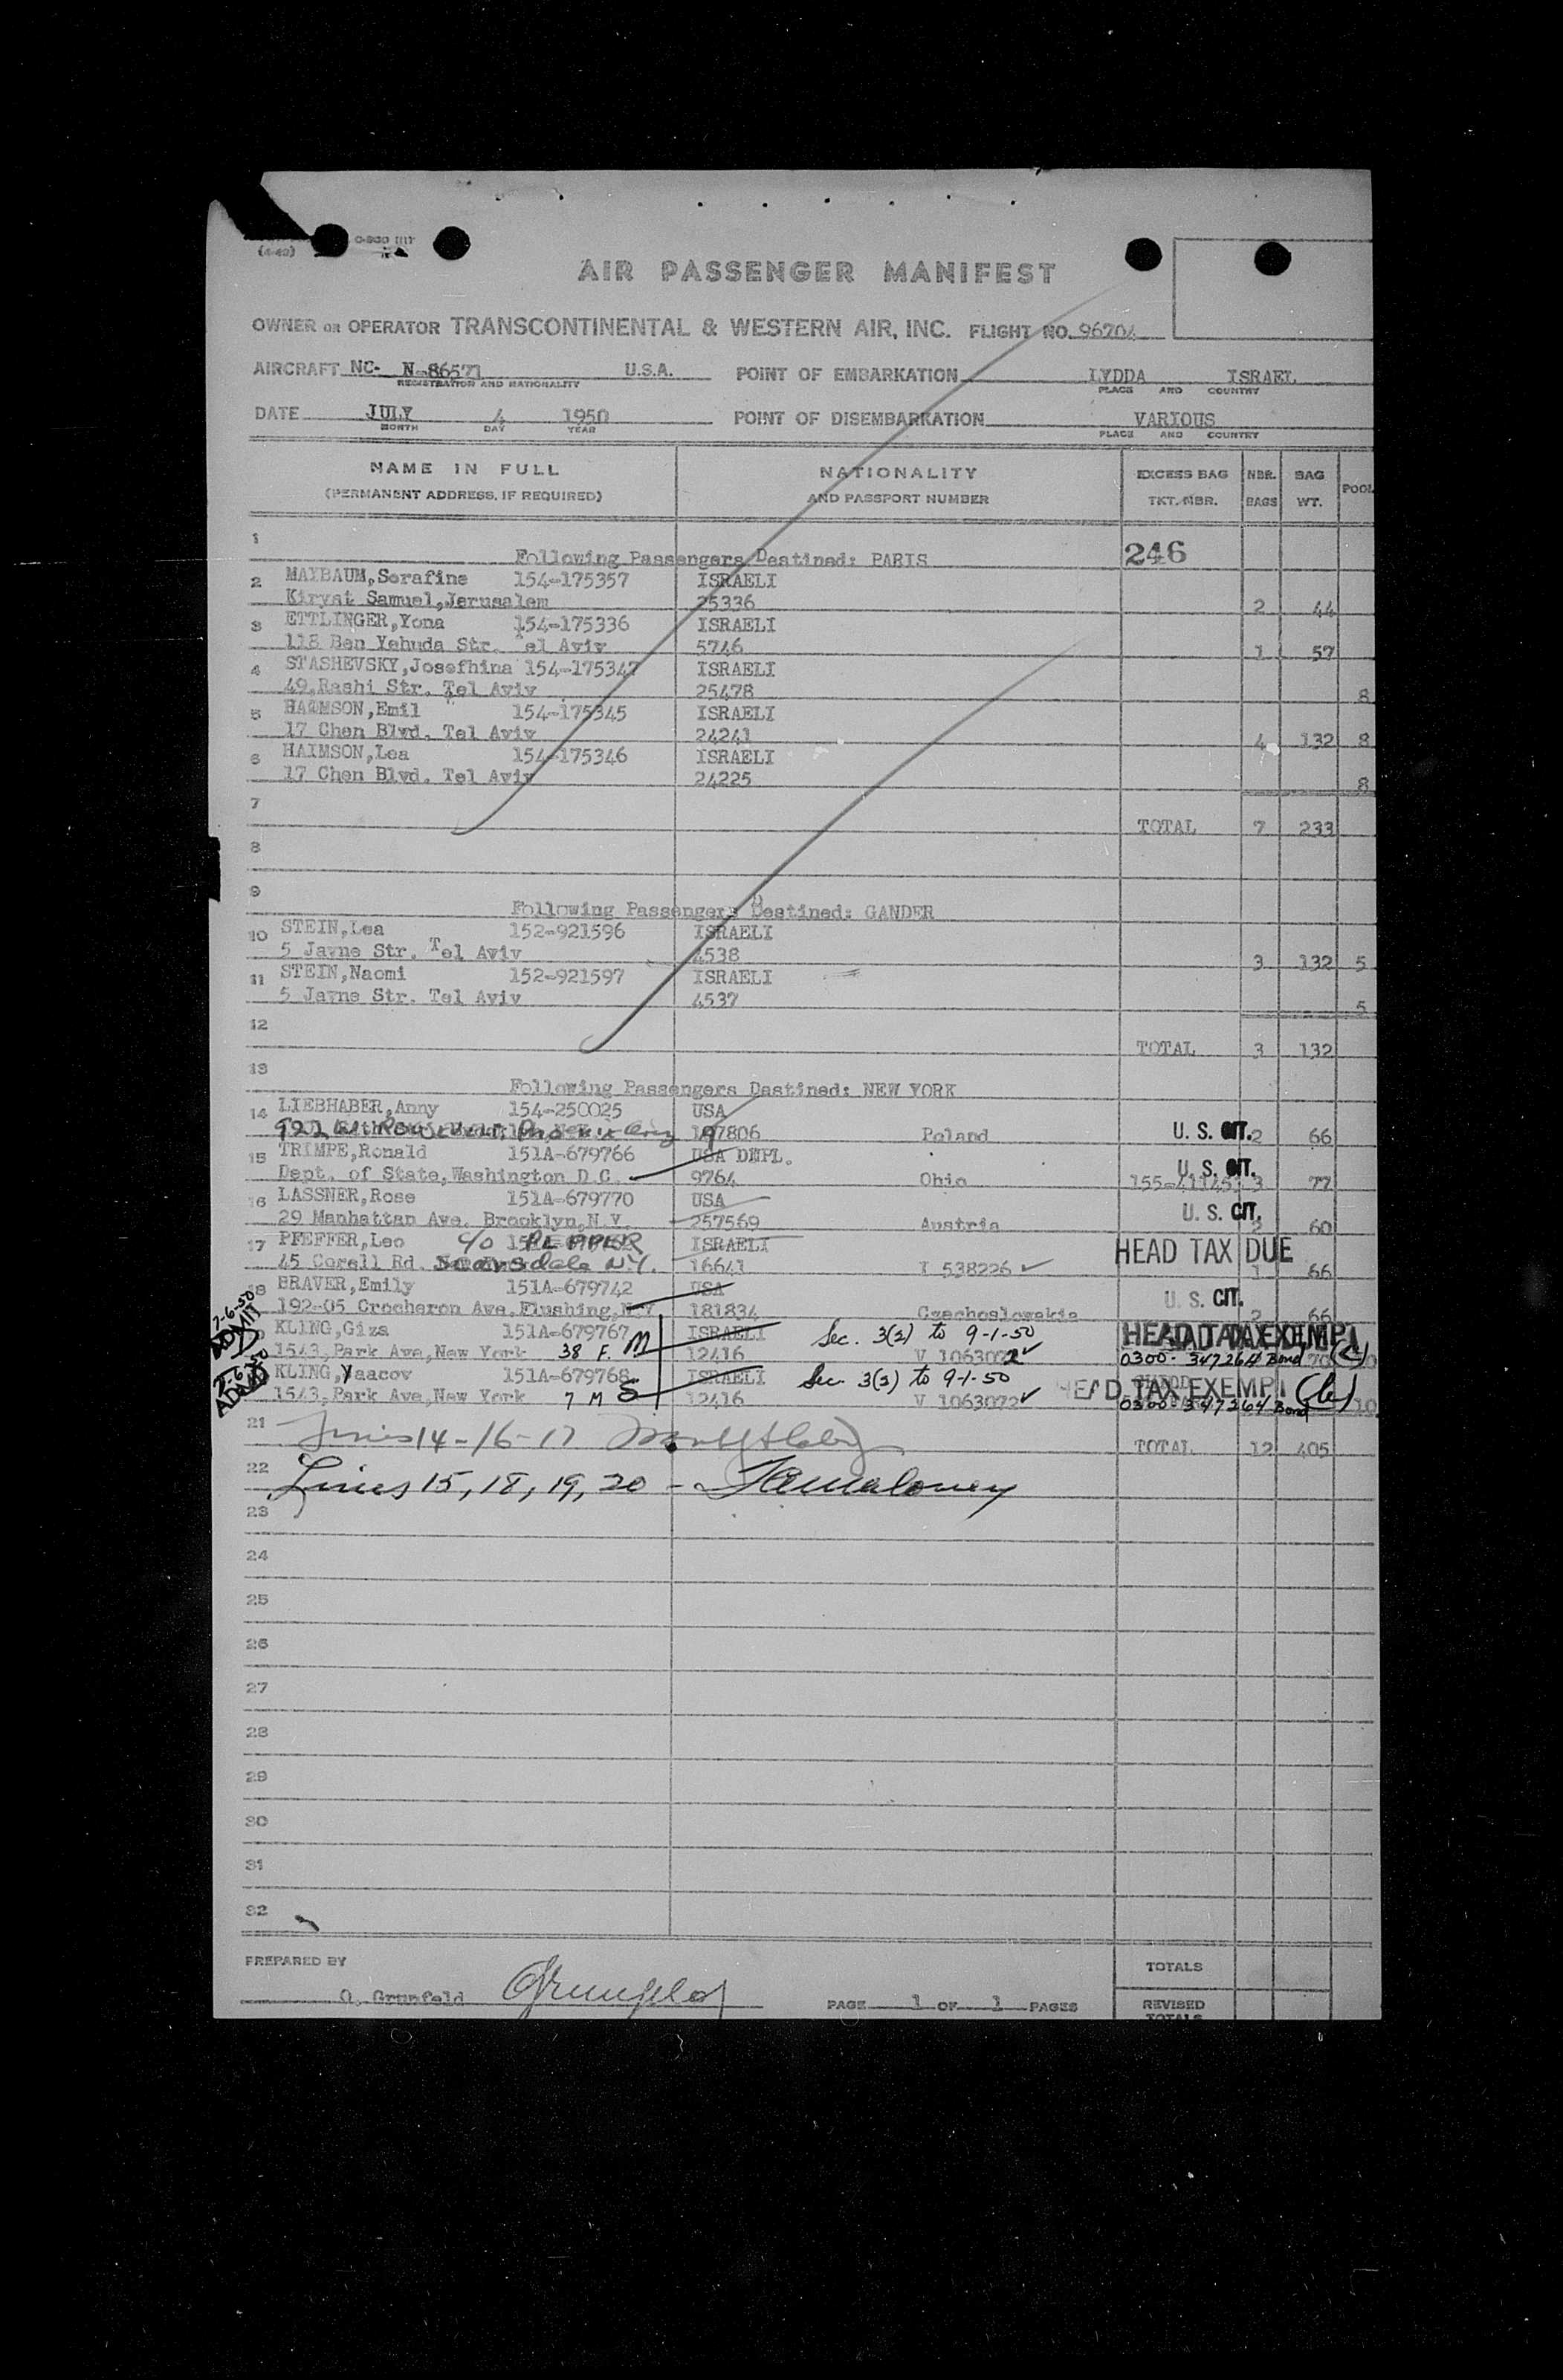 (4-49)
AIR PASSENGER MANIFEST
OWNER OR OPERATOR TRANSCONTINENTAL & WESTERN AIR, INC. FLIGHT NO. 96704
AIRCRAFT NC- N-86571 U.S.A. POINT OF EMBARKATION LYDDA ISRAEL
REGISTRATION AND NATIONALITY PLACE AND COUNTRY
DATE JULY 4 1950 POINT OF DISEMBARKATION VARIOUS
MONTH DAY YEAR PLACE AND COUNTRY
NAME IN FULL NATIONALITY EXCESS BAG NBR. BAG POOL
(PERMANENT ADDRESS, IF REQUIRED) AND PASSPORT NUMBER TKT. NBR. BAGS WT.
1 Following Passengers Destined: PARIS 246
2 MAYBAUM,Serafine 154-175357 ISRAELI
Kiryat Samuel,Jerusalem 25336 2 44
3 ETTLINGER,Yona 154-175336 ISRAELI
118 Ben Yehuda Str. Tel Aviv 5746 1 57
4 STASHEVSKY,Josefhina 154-175347 ISRAELI
49,Rashi Str. Tel Aviv 25478 8
5 HAIMSON,Emil 154-175345 ISRAELI
17 Chen Blvd. Tel Aviv 24241 4 132 8
6 HAIMSON,Lea 154-175346 ISRAELI
17 Chen Blvd. Tel Aviv 24225 8
7 TOTAL 7 233
8
9 Following Passengers Destined: GANDER
10 STEIN,Lea 152-921596 ISRAELI
5 Jayne Str. Tel Aviv 4538 3 132 5
11 STEIN,Naomi 152-921597 ISRAELI
5 Jayne Str. Tel Aviv 4537 5
12 TOTAL 3 132
13 Following Passengers Destined: NEW YORK
14 LIEBHABER,Anny 154-250025 USA
922 W. Roosevelt Phoenix Ariz 197806 Poland U. S. CIT. 2 66
15 TRIMPE,Ronald 151A-679766 USA DMPL.
Dept. of State,Washington D.C. 9764 Ohio U. S. CIT. 3 77
16 LASSNER,Rose 151A-679770 USA
29 Manhattan Ave. Brooklyn,N.Y. 257569 Austria U. S. CIT. 2 60
17 PFEFFER,Leo c/o PEPPER ISRAELI HEAD TAX DUE
45 Corell Rd. Scarsdale N.Y. 16641 I 538226 1 66
18 BRAVER,Emily 151A-679742 USA
192-05 Crocheron Ave.Flushing,N.Y 181834 Czechoslowakia U. S. CIT. 2 66
7-6-50 ADMIT
KLING,Giza 151A-679767 M ISRAELI Sec. 3(2) to 9-1-50 HEAD TAX EXEMPT
1543,Park Ave,New York 38 F. 12416 V 1063072 0300- 347264 Bond
KLING,Yaacov 151A-679768 S ISRAELI Sec. 3(2) to 9-1-50 HEAD TAX EXEMPT
1543,Park Ave,New York 7 M 12416 V 1063072 0300- 347264 Bond 10
21 Lines 14-16-17 TOTAL 12 405
22 Lines 15, 18, 19, 20 - Maloney
23
24
25
26
27
28
29
30
31
32
PREPARED BY TOTALS
O. Grunfeld Grunfeld PAGE 1 OF 1 PAGES REVISED
TOTALS